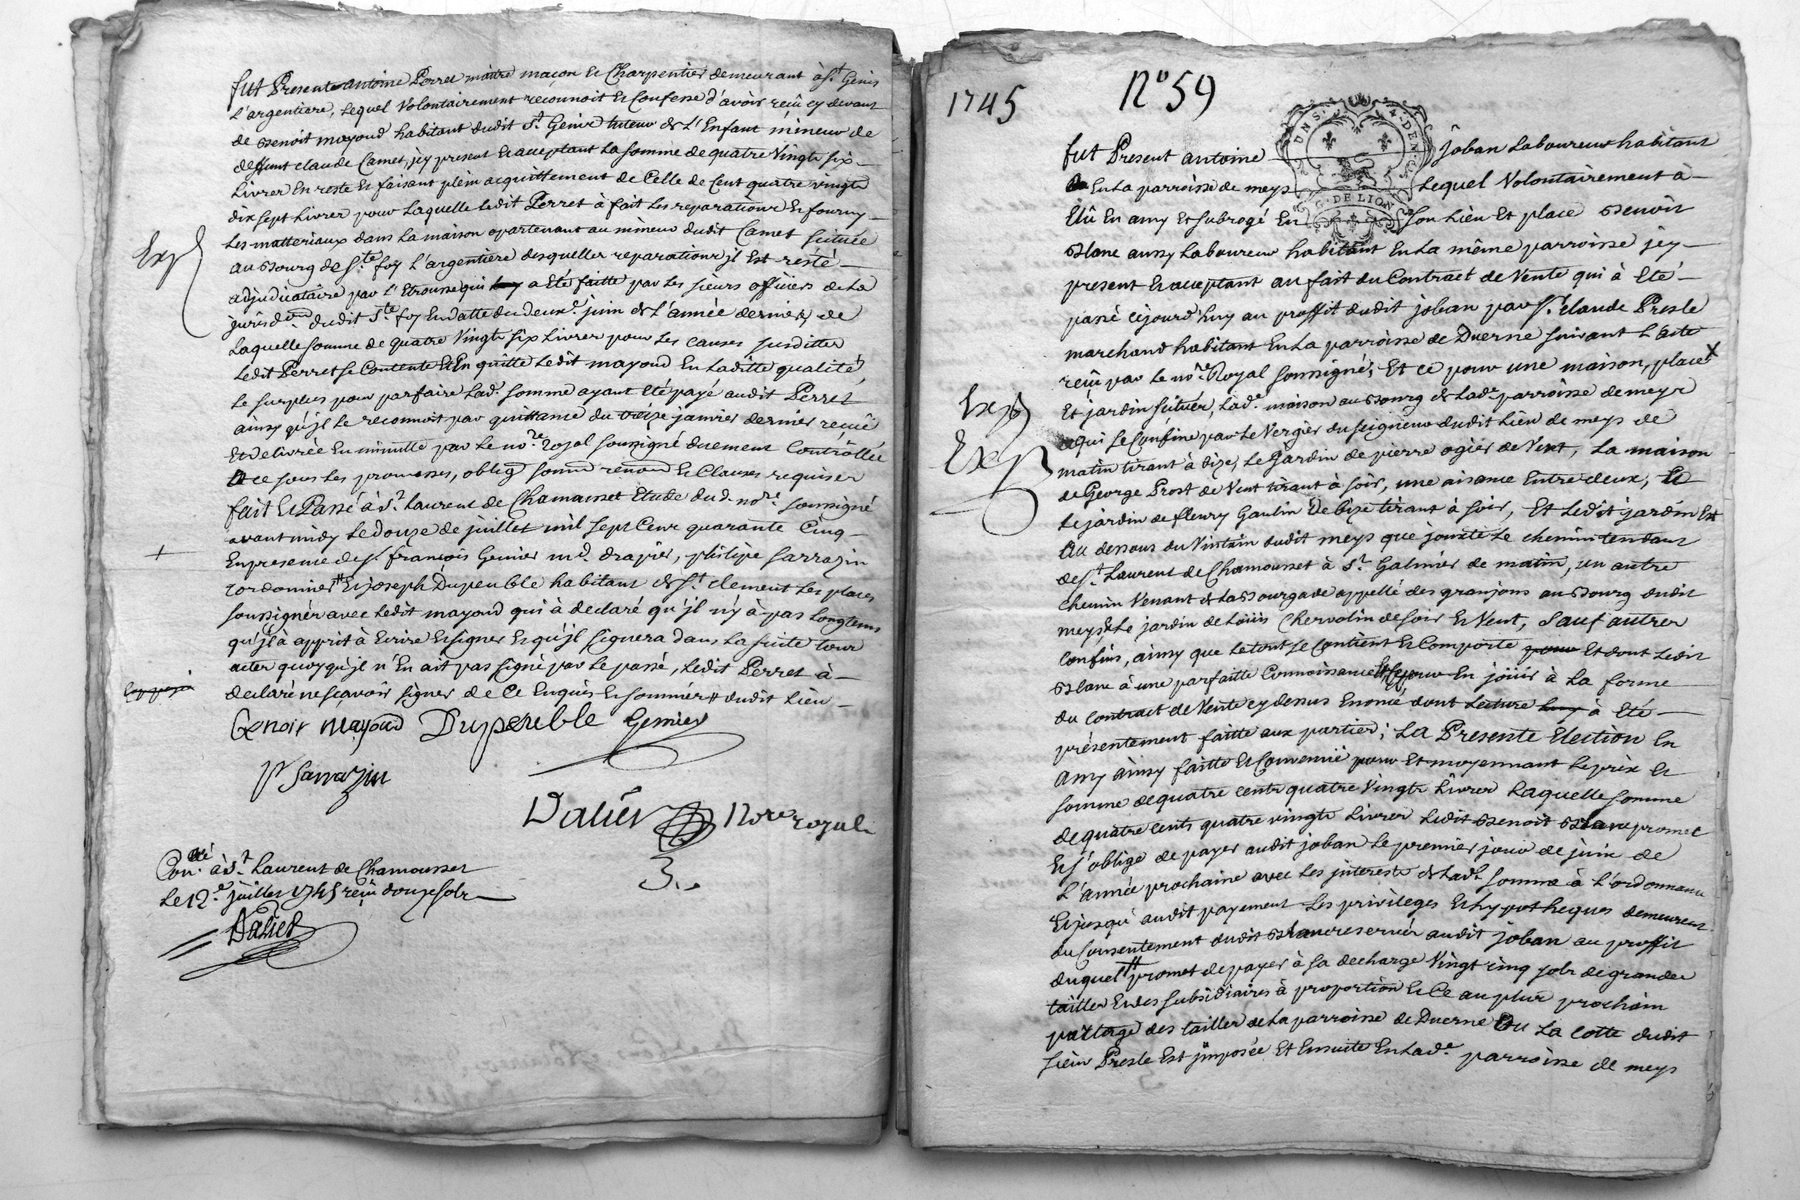 fut Present antoine Perret maitre maçon et Charpentier demeurant à St Genis
l'argentiere, Lequel Volontairement reconnoit et Confesse d'avoir reçû cy devant
de Benoit mayoud habitant dudit St Genis tuteur de L'Enfant mineur de
deffunt claude Camet, jcy present et acceptant La somme de quatre Vingts six
Livres En reste et faisant plein acquittement de Celle de Cent quatre vingts
dix sept Livres pour Laquelle Ledit Perret à fait Les reparations et fourny
Les matteriaux dans La maison apartenant au mineur dudit Camet scituée
Exp
au Bourg de Ste foy L'argentière desquelles reparations jl Est resté
adjudicataire par L'Etrousse qui a été faitte par Les sieurs officiers de La
jurisdon dudit Ste foy En datte du deuxe juin de L'année derniere, de
Laquelle somme de quatre Vingts six Livres pour Les causes susdittes
Ledit Perret se Contente Et En quitte Ledit mayoud En Laditte qualité
Le surplus pour parfaire Lade somme ayant Eté payé audit Perret
ainsy qu'jl Le reconnoit par quittance du treize janvier dernier reçuë
Et delivrée En minutte par Le nore Royal soussigné duement Contrôllée
Et ce sous Les promesses, obligs soums renons et Clauses requises
fait et Passé à St Laurent de Chamousset Etude dud. nore soussigné
avant midy Le douze de juillet mil sept Cent quarante Cinq
+
En presence de sr françois Genier md drapier, philipe sarrazin
Cordonnier # Et joseph Dupeuble habitant de St Clement Les places
soussignés avec Ledit mayoud qui à declaré qu'jl n'y à pas Longtems
qu'jl à apprit à Ecrire Et signer Et qu'jl signera dans La suite tous
actes quoy qu'jl n'En ait pas signé par Le passé, Ledit Perret à
declaré ne sçavoir signer de Ce Enquis Et sommé # dudit Lieu
Benoit mayoud Dupeuble Genier
P Sarrazin
Dalier Nore royal
3..
Conllé à St Laurent de Chamousset
Le 12e juillet 1745 reçû douze sols
Dalier
1745 No 59
G. DE LION
fut Present antoine joban Laboureur habitant
En La parroisse de meys Lequel Volontairement à
Elû En amy Et subrogé En son Lieu Et place Benoit
Blanc aussy Laboureur habitant En La même parroisse jcy
present et acceptant au fait du Contract de Vente qui à Eté
passé cejourd'huy au proffit dudit joban par sr claude Presle
marchand habitant En La parroisse de Duerne suivant L'acte
reçû par Le nore Royal soussigné, Et ce pour une maison, place x
Exp
Et jardin scitués, Lade maison au Bourg de Lade parroisse de meys
Exp
qui se Confine par Le Vergier du seigneur dudit Lieu de meys de
matin tirant à bize, Le Jardin de pierre ogier de Vent, La maison
de George Prost de Vent tirant à soir, une aisance Entre deux,
Le jardin de fleury Gaulin De bize tirant à soir, Et Ledit jardin Est
Au dessous du Vintain dudit meys que jouxte Le chemin tendant
de St Laurent de Chamousset à St Galmier de matin, un autre
chemin Venant de La Bourgade appellé des granjons au Bourg dudit
meys Et Le jardin de Loüis Chervolin de soir Et Vent, sauf autres
Confins, ainsy que Le tout se Contient Et Comporte Et dont Ledit
Blanc à une parfaite Connoissance pour En joüir à La forme
du Contract de Vente cy dessus Enoncé dont Lecture à Eté
présentement faitte aux parties; La Presente Election En
Amy ainsy faitte Et Convenuë pour Et moyennant Le prix Et
somme de quatre cents quatre Vingts Livres Laquelle somme
de quatre cents quatre vingts Livres Ledit Benoit Blanc promet
Et s'oblige de payer audit joban Le premier jour de juin de
L'année prochaine avec Les jnterests de Lade somme à L'ordonnance
Et jusqu'audit payement Les privileges Et hypotheques demeurent
du Consentement dudit Blanc reservés audit joban au proffit
duquel # promet de payer à sa decharge Vingt cinq sols de grandes
tailles Et des subsidiaires à proportion Et Ce au plus prochain
partage des tailles de La parroisse de Duerne Où La Cotte dudit
sieur Presle Est jmposée Et Ensuite En Lade parroisse de meys